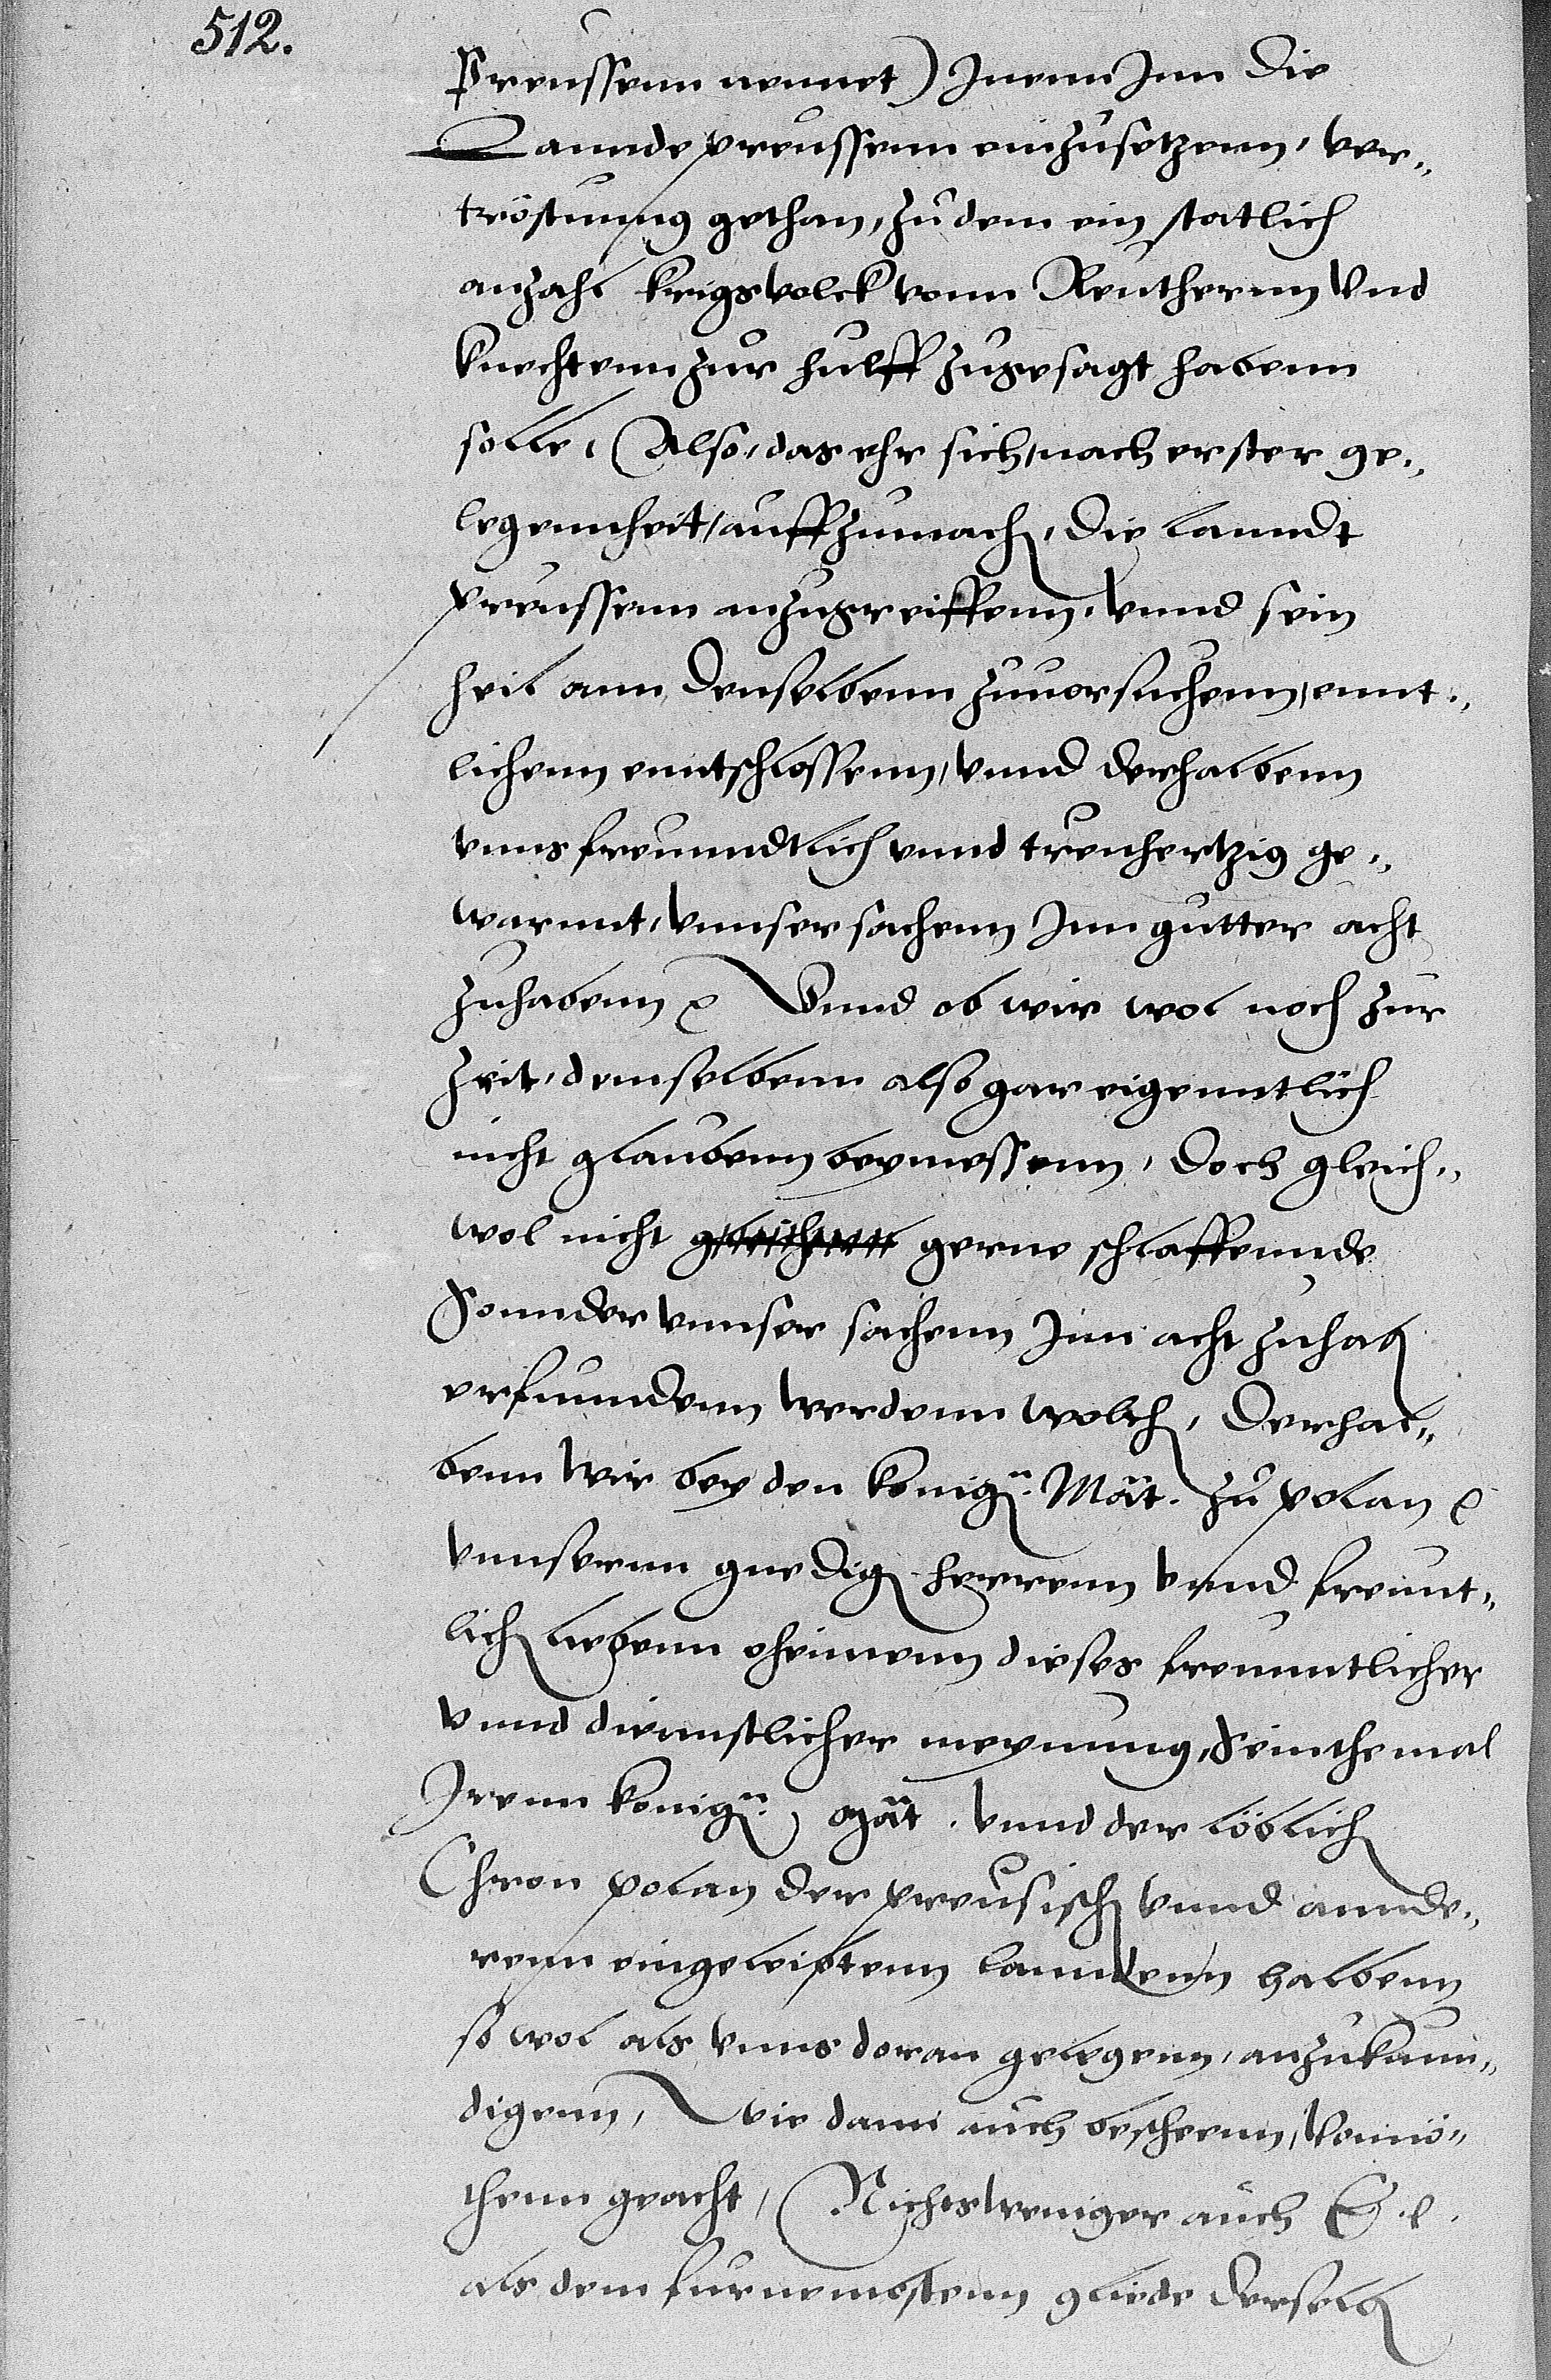 512.
Preussenn nennet) Inenn Inn die
Lannde preussenn einzusetzenn, ver„
tröstunng gethan, zu dem ein statlich
anzahl krigsvolck vonn Reuthernn Vnd
knechtenn zur hulff zugesagt habenn
solle, Also, das ehr sich, nach erster ge„
legennheit, auffzumach, die lanndt
preussenn anzugreiffenn, vnnd sein
heil ann denselbenn zuuorsuchenn, ennt„
lichenn enntschlossenn, vnnd derhalbenn
vnns freunndtlich vnnd treuhertzig ge„
warnnt, vnnser sachenn Inn gutter acht
zuhabenn ꝛc Vnnd ob wir wol noch zur
zeit, demselbenn also gar eigenntlich
nicht glaubenn beymessenn, Doch gleich„
wol nicht gleichwol gerne schlaffennde
Sonnder vnnser sachenn Inn acht zuhab
erfunndenn werdenn woltt, Derhal„
benn wir bey den konign. Mät. zu polan ꝛc
vnnserenn gnedig herrenn vnnd freunt„
lich liebenn oheimenn dieses freunntlicher
vnnd diennstlicher meynunng, Seinthemal
Irenn konign. Mät. vnnd der löblich
Chron polan der preusisch vnnd annde„
renn eingeleiptenn lanndenn halbenn
so wol als vnns doran gelegenn, anzukun„
digenn, Wie dann auch bescheenn, vonnö„
thenn geacht, Nichtsweniger auch E. l.
als dem furnembstenn gliede derselb